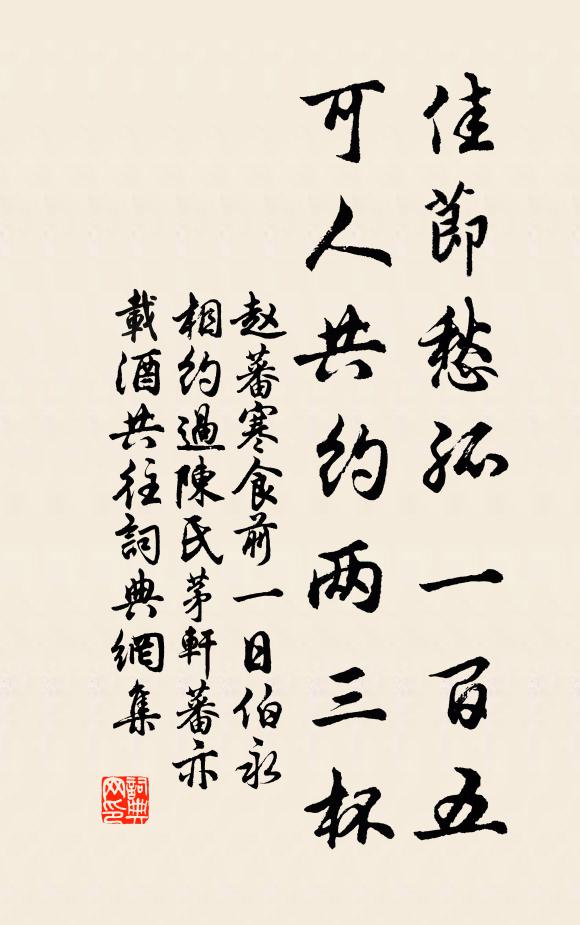 佳節愁孤一百五
可人共約两三杯
赵蕃寒食前一日伯永
相約過陳氏茅軒蕃亦
載酒共往詞典網集
詞典
网印